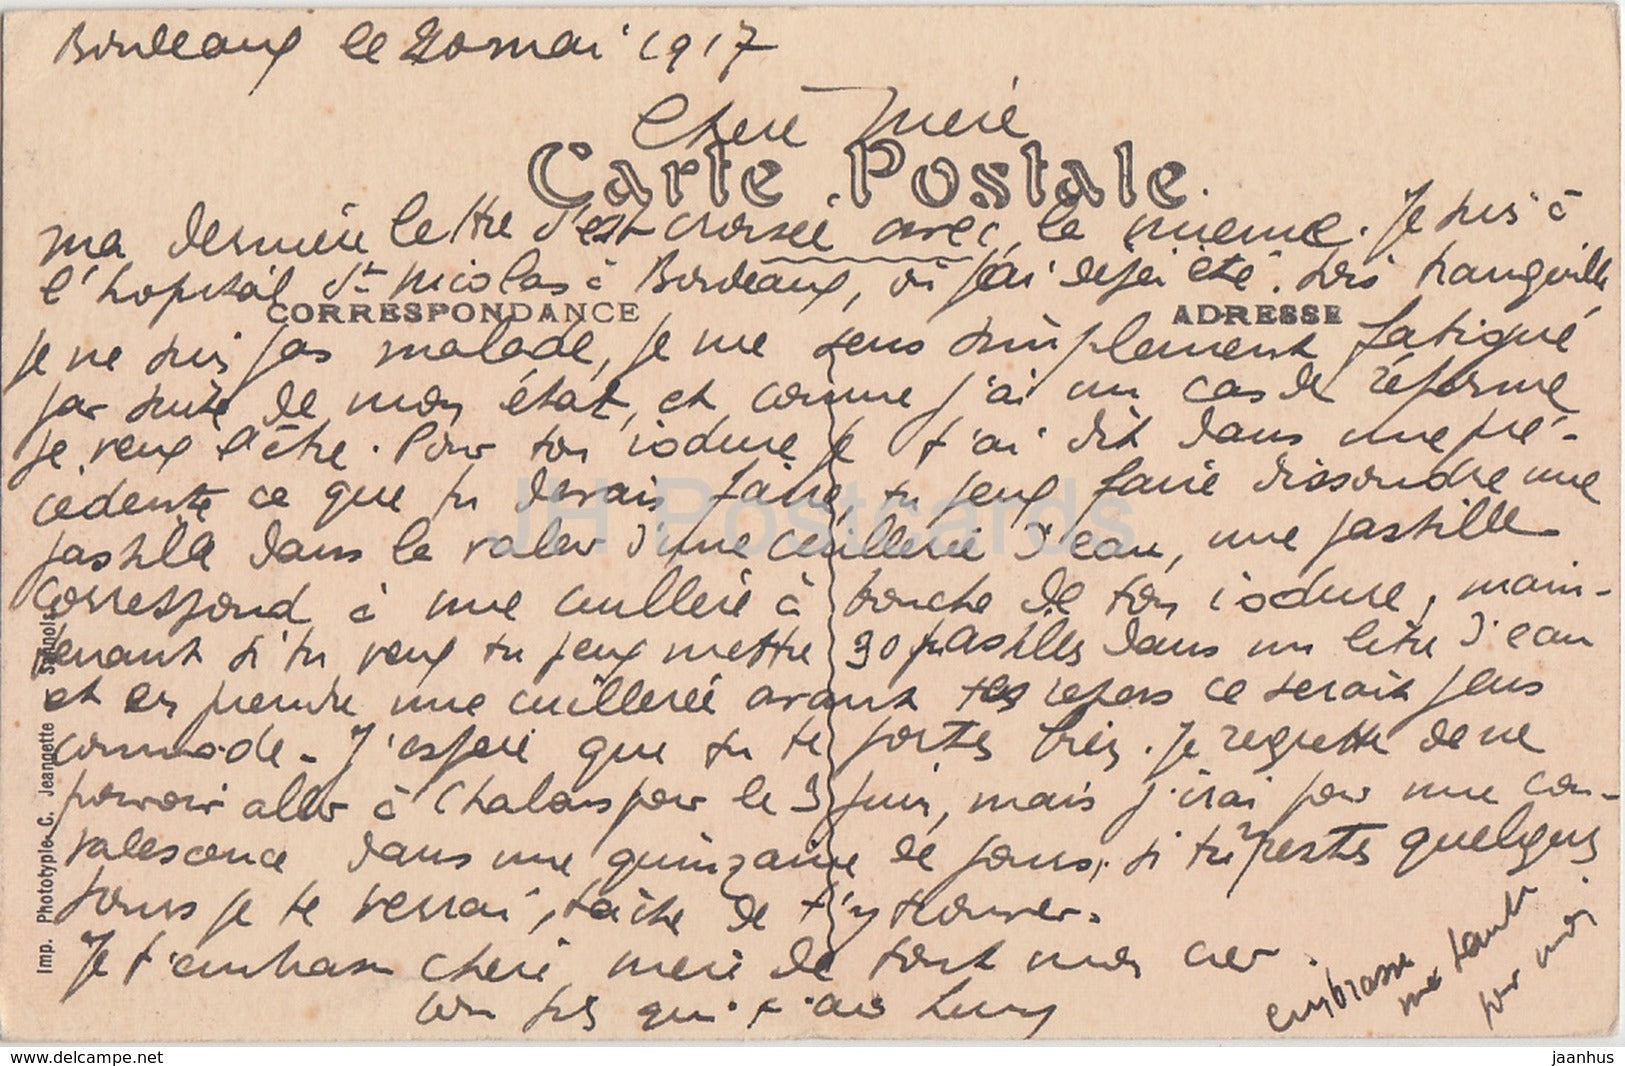 Bordeaux le 20 mai 1917
Chere Mere
Carte Postale
ma dernière lettre s'est croisée avec la mienne. Je suis à
l'hopital St Nicolas à Bordeaux, où j'ai dejà été. sois tranquille
CORRESPONDANCE
ADRESSE
je ne suis pas malade, je me sens simplement fatigué
par suite de mon état, et comme j'ai un cas de réforme
je veux l'être. Pour ton iodure je t'ai dit dans une pré-
cedente ce que tu devais faire, tu peux faire dissoudre une
pastille dans la valeur d'une cuillerée d'eau, une pastille
correspond à une cuillere à bouche de ton iodure, main-
tenant si tu veux tu peux mettre 30 pastilles dans un litre d'eau
et en prendre une cuillerée avant tes repas ce serait plus
commode. J'espere que tu te portes bien. Je regrette de ne
pouvoir aller à Chalais pour le 3 juin, mais j'irai pour une con-
valescence dans une quinzaine de jours, si tu y restes quelques
jours je te verrai, tâche de t'y trouver.
Je t'embrasse chere mere de tout mon cœur.
ton fils qui t'aime
embrasse
ma tante
pour moi.
Imp. Phototypie C. Jeangette
JH Postcards
delcampe.net
jaanhus